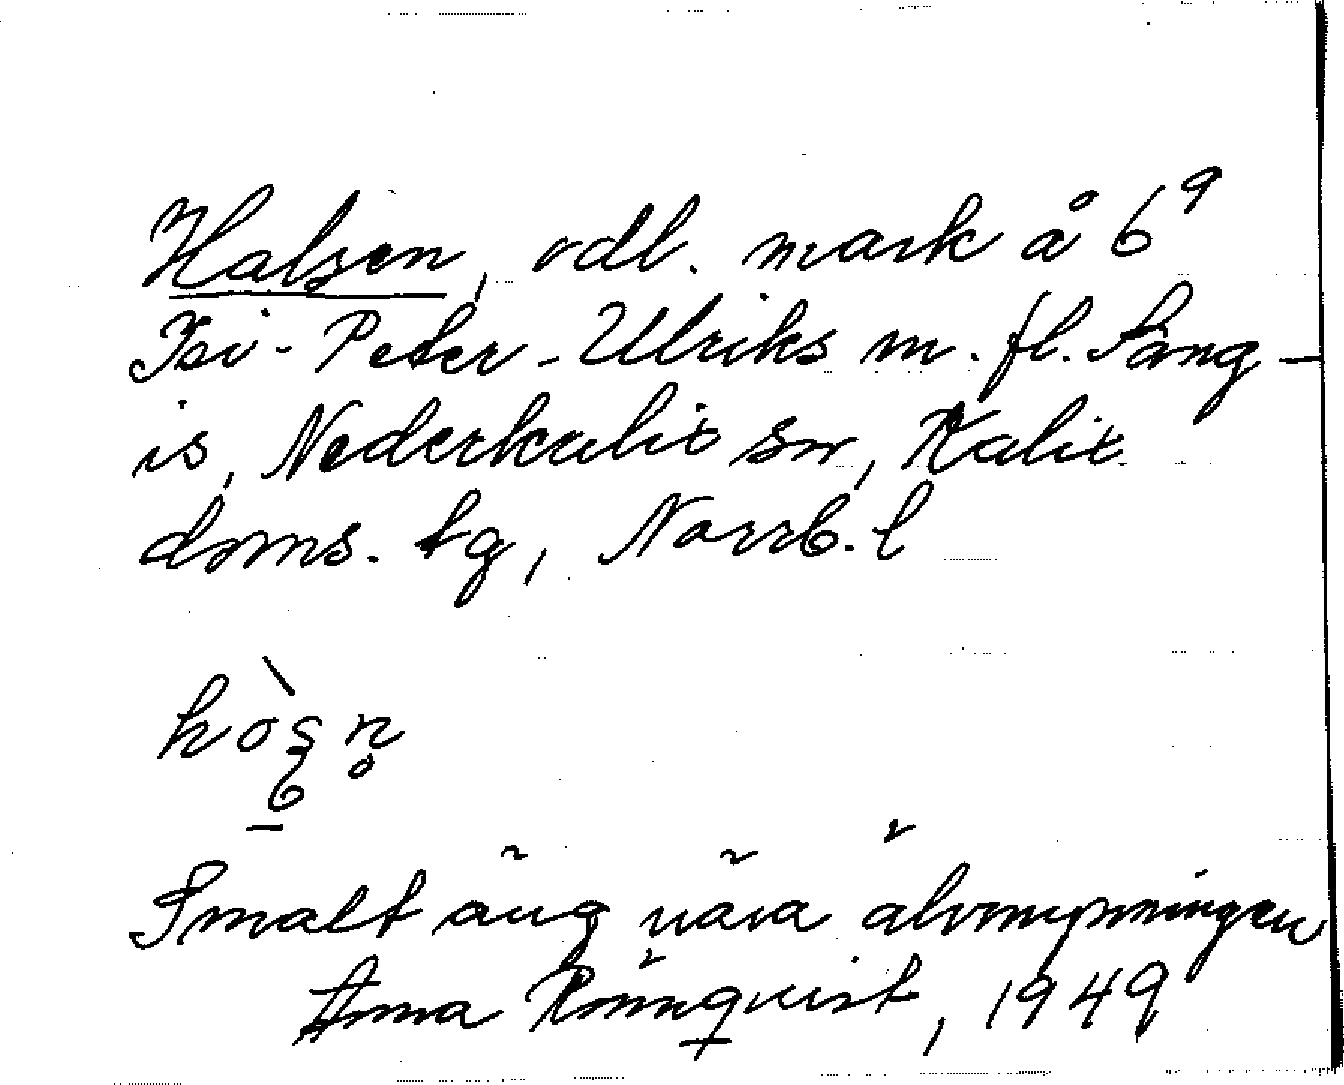 Halsen, odl. mark å 6⁹
Isi-Peter-Ulriks m. fl. Sang-
is, Nederkalix sn, Kalix
doms. tg, Norrb. l
Smalt äng nära älvmynningen
Anna Rönnqvist, 1949